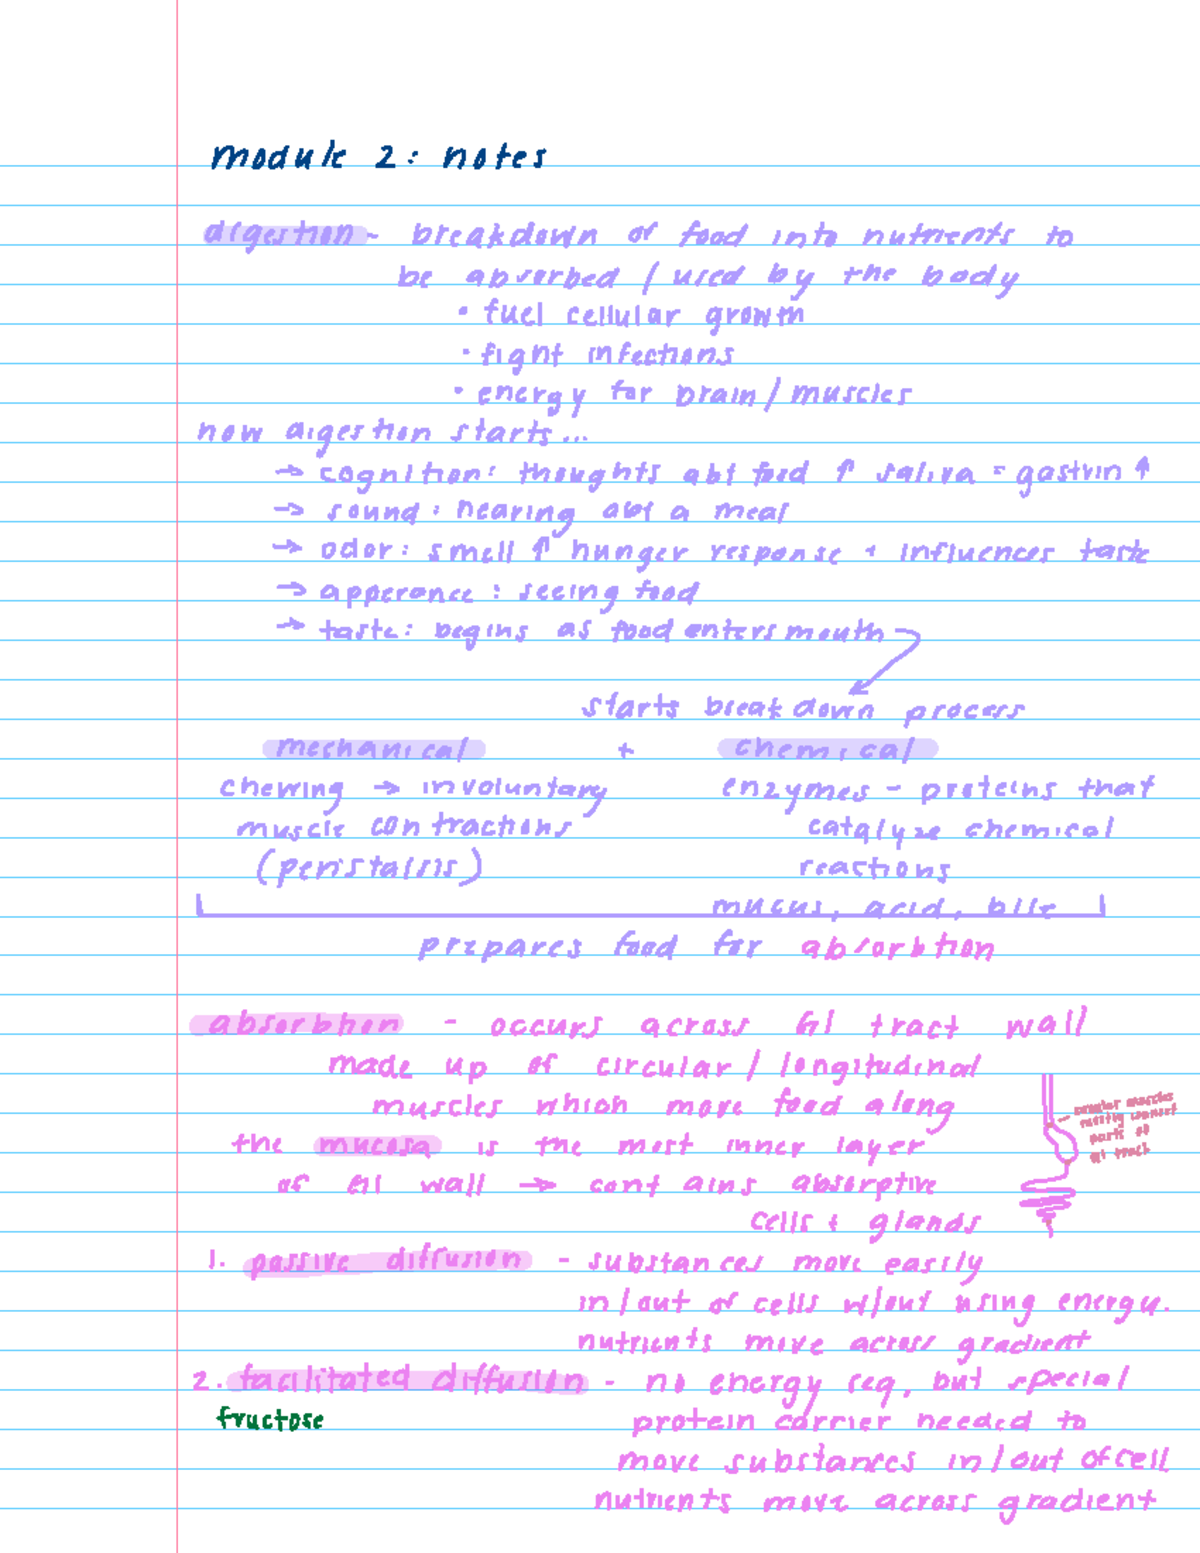 module 2: notes
digestion - breakdown of food into nutrients to
be absorbed / used by the body
• fuel cellular growth
• fight infections
• energy for brain / muscles
how digestion starts...
→ cognition: thoughts abt food ↑ saliva = gastrin ↑
→ sound: hearing abt a meal
→ odor: smell ↑ hunger response + influences taste
→ apperance: seeing food
→ taste: begins as food enters mouth
starts breakdown process
mechanical + chemical
chewing → involuntary
muscle contractions
(peristalsis)
enzymes - proteins that
catalyze chemical
reactions
mucus, acid, bile
prepares food for absorbtion
absorbtion - occurs across GI tract wall
made up of circular / longitudinal
muscles which move food along
circular muscles
mostly
parts of
GI track
the mucosa is the most inner layer
of GI wall → contains absorptive
cells + glands
1. passive diffusion - substances move easily
in/out of cells w/out using energy.
nutrients move across gradient
2. facilitated diffusion - no energy req, but special
fructose
protein carrier needed to
move substances in/out of cell
nutrients move across gradient